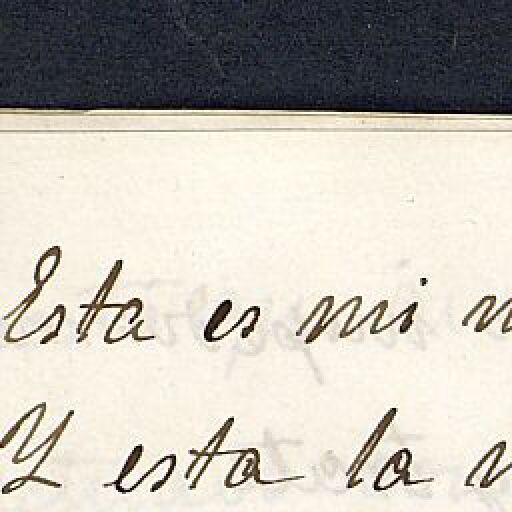 Esta es mi
Y esta la